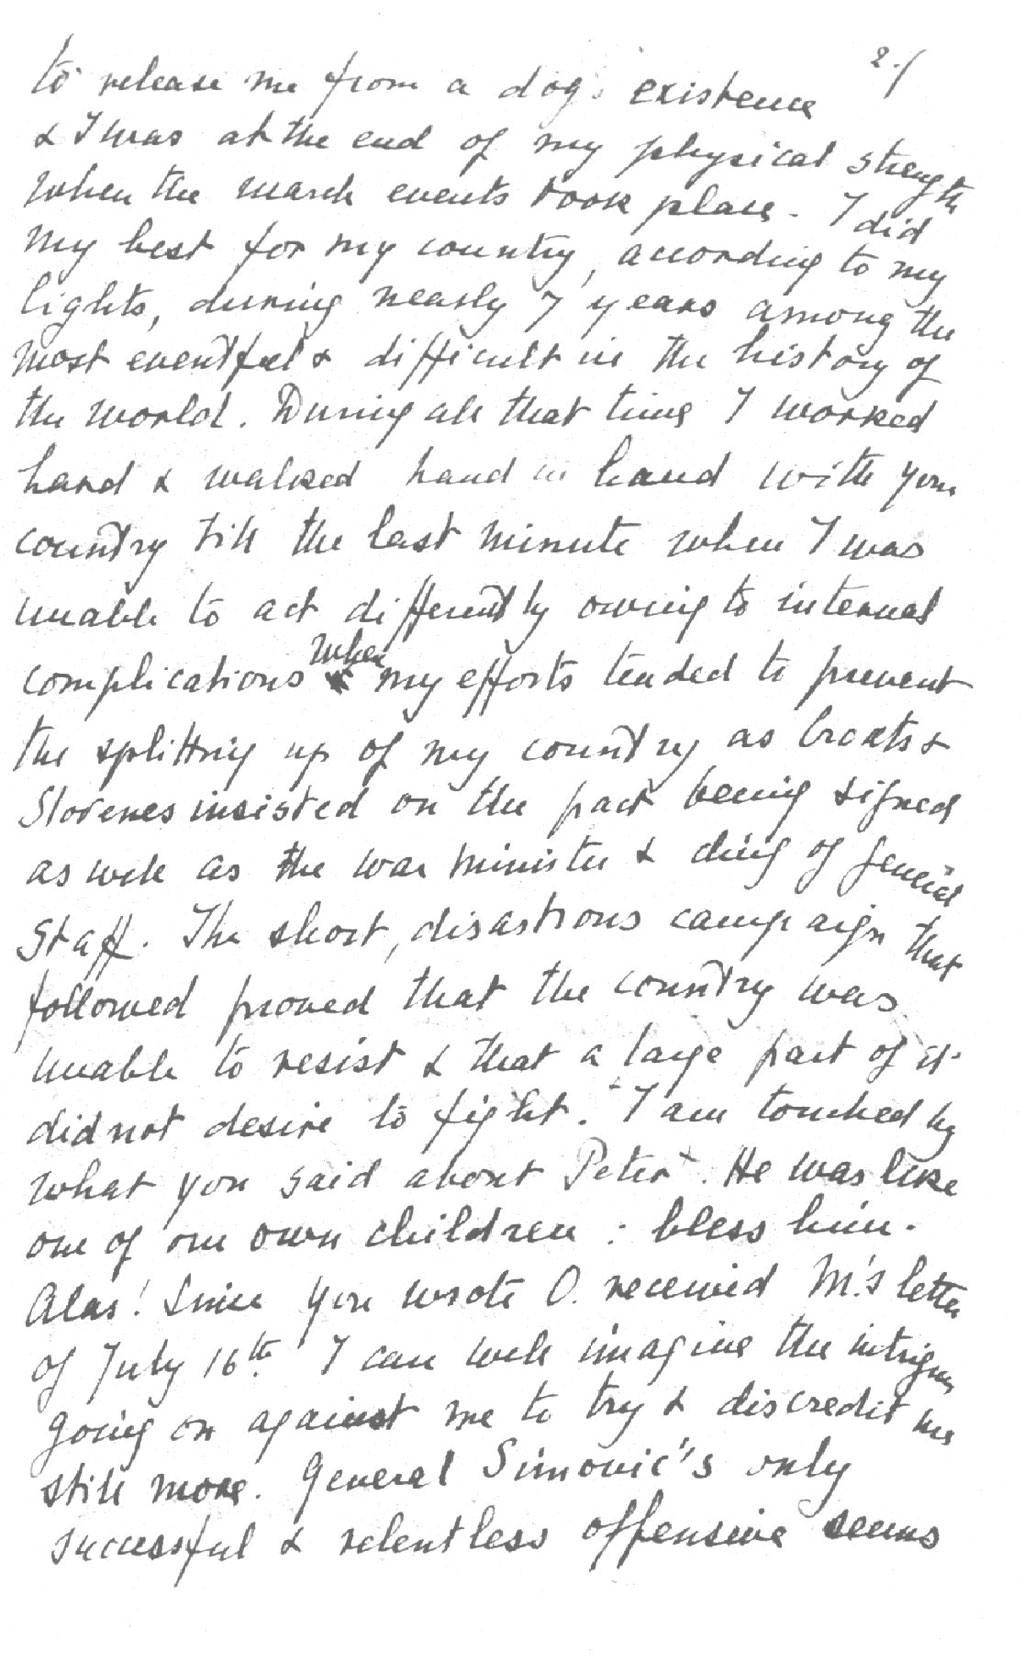 2./
to release me from a dog's existence
& I was at the end of my physical strength
when the march events took place. I did
my best for my country, according to my
lights, during nearly 7 years among the
most eventful & difficult in the history of
the world. During all that time I worked
hard & walked hand in hand with your
country till the last minute when I was
unable to act differently owing to internal
complications when my efforts tended to prevent
the splitting up of my country as Croats &
Slovenes insisted on the pact being signed
as well as the war minister & chief of general
Staff. The short, disastrous campaign that
followed proved that the country was
unable to resist & that a large part of it
did not desire to fight. I am touched by
what you said about Peter. He was like
one of our own children : bless him.
Alas! Since you wrote O. received M.'s letter
of July 16th. I can well imagine the intrigues
going on against me to try & discredit me
still more. General Simović's only
successful & relentless offensive seems